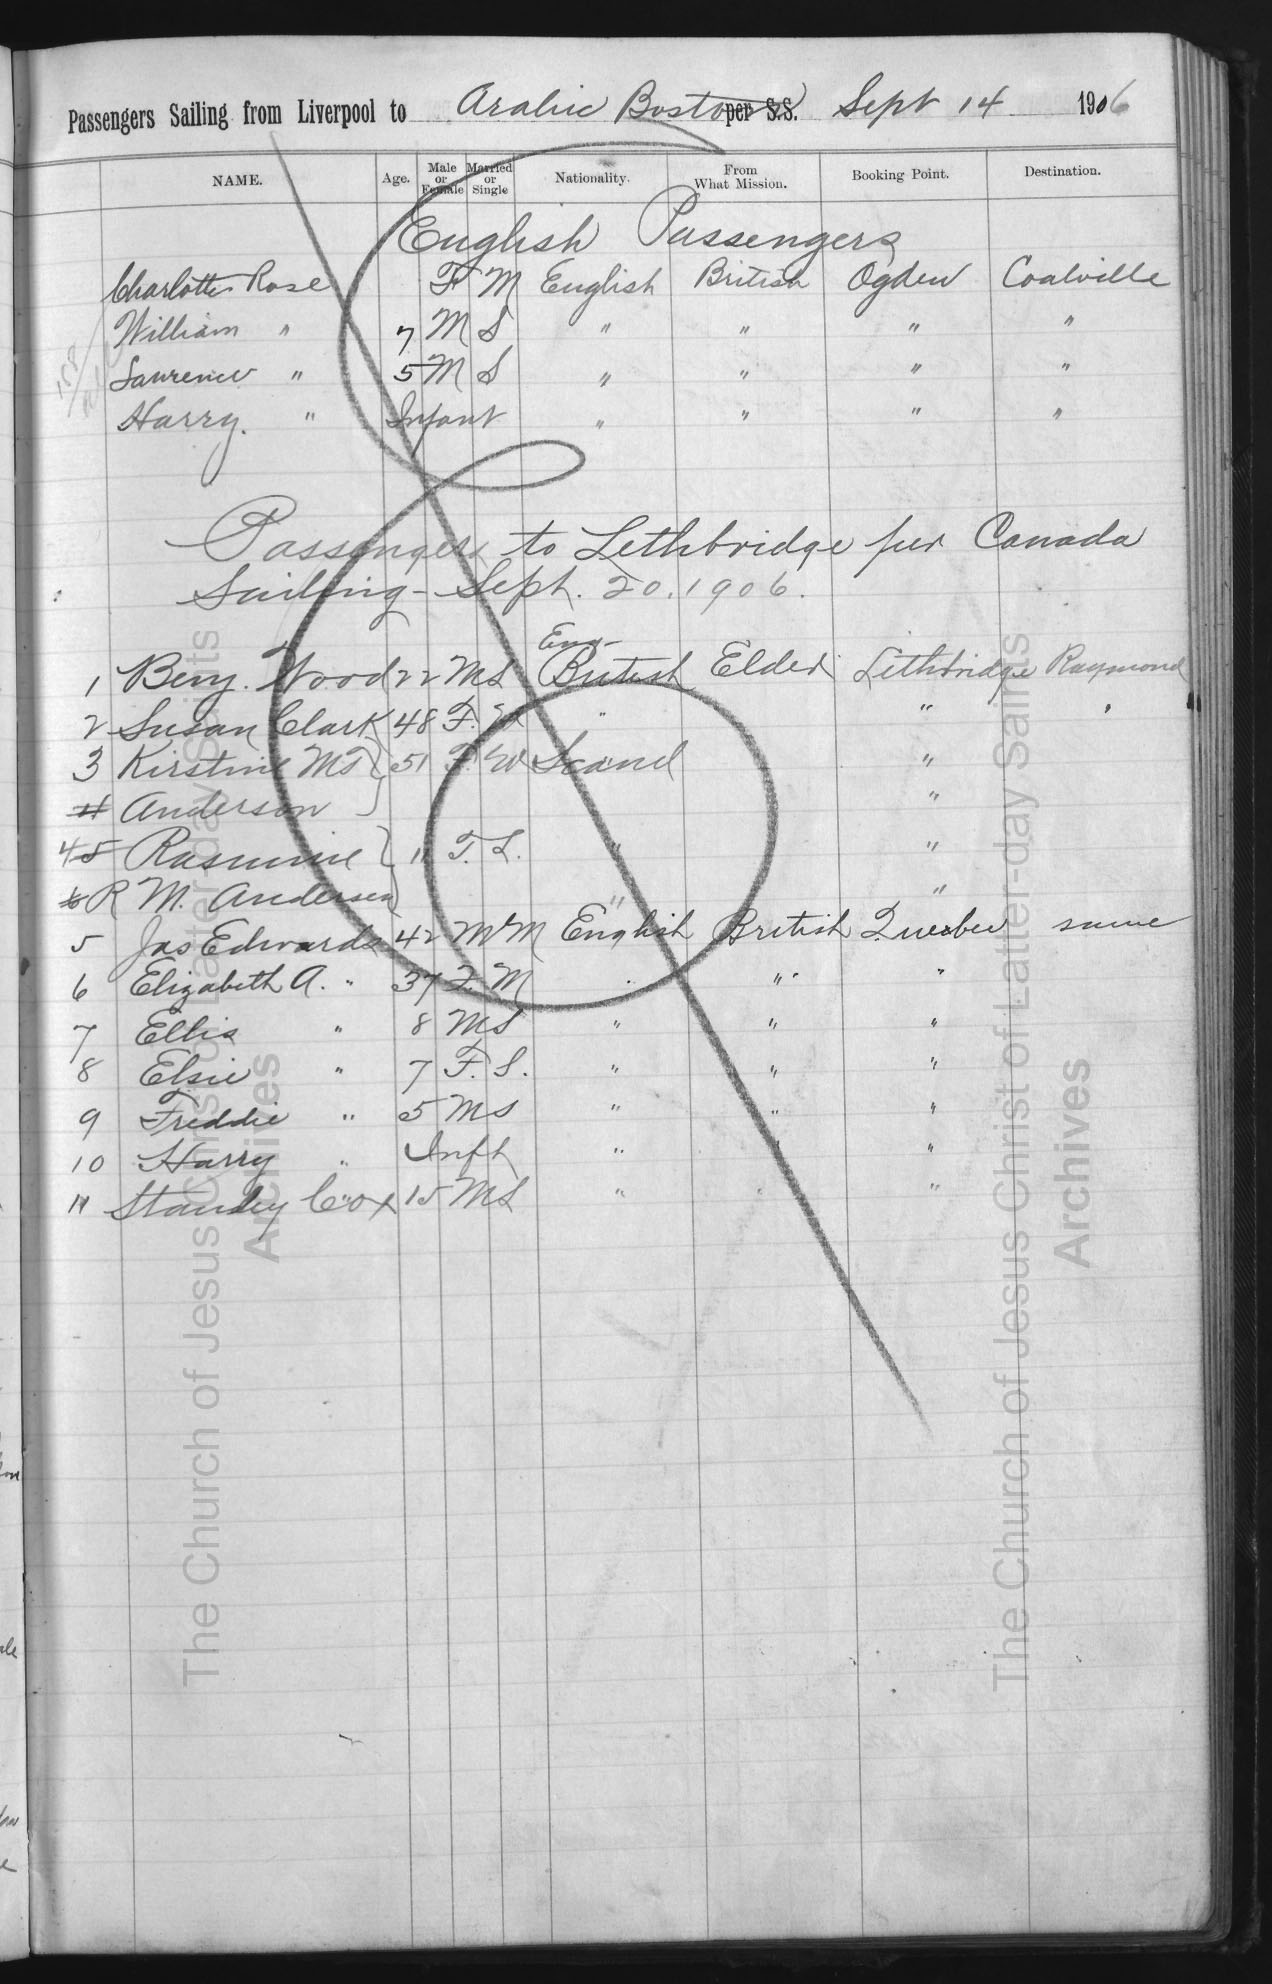 Passengers Sailing from Liverpool to Arabic Boston per S.S. Sept 14 1906
NAME. Age. Male or Female Married or Single Nationality. From What Mission. Booking Point. Destination.
English Passengers
Charlotte Rose F M English British Ogden Coalville
William " 7 M S " " " "
Lawrence " 5 M S " " " "
Harry. " Infant " " " "
158
Passengers to Lethbridge per Canada
Sailing - Sept. 20. 1906.
Eng-
1 Benj. Wood 22 M S British Elder Lethbridge Raymond
2 Susan Clark 48 F. W " " "
3 Kirstine M T } 51 F. W Scand "
4 Anderson } "
45 Rasmine } 11 F. S. " "
6 R M. Andersen } " "
5 Jas Edwards 42 M M English British Quebec same
6 Elizabeth A. " 37 F. M " " "
7 Ellis " 8 M S " " "
8 Elsie " 7 F. S. " " "
9 Freddie " 5 M S " " "
10 Harry " Inft " " "
11 Stanley Cox 15 M S " " "
The Church of Jesus Christ of Latter-day Saints
Archives
The Church of Jesus Christ of Latter-day Saints
Archives